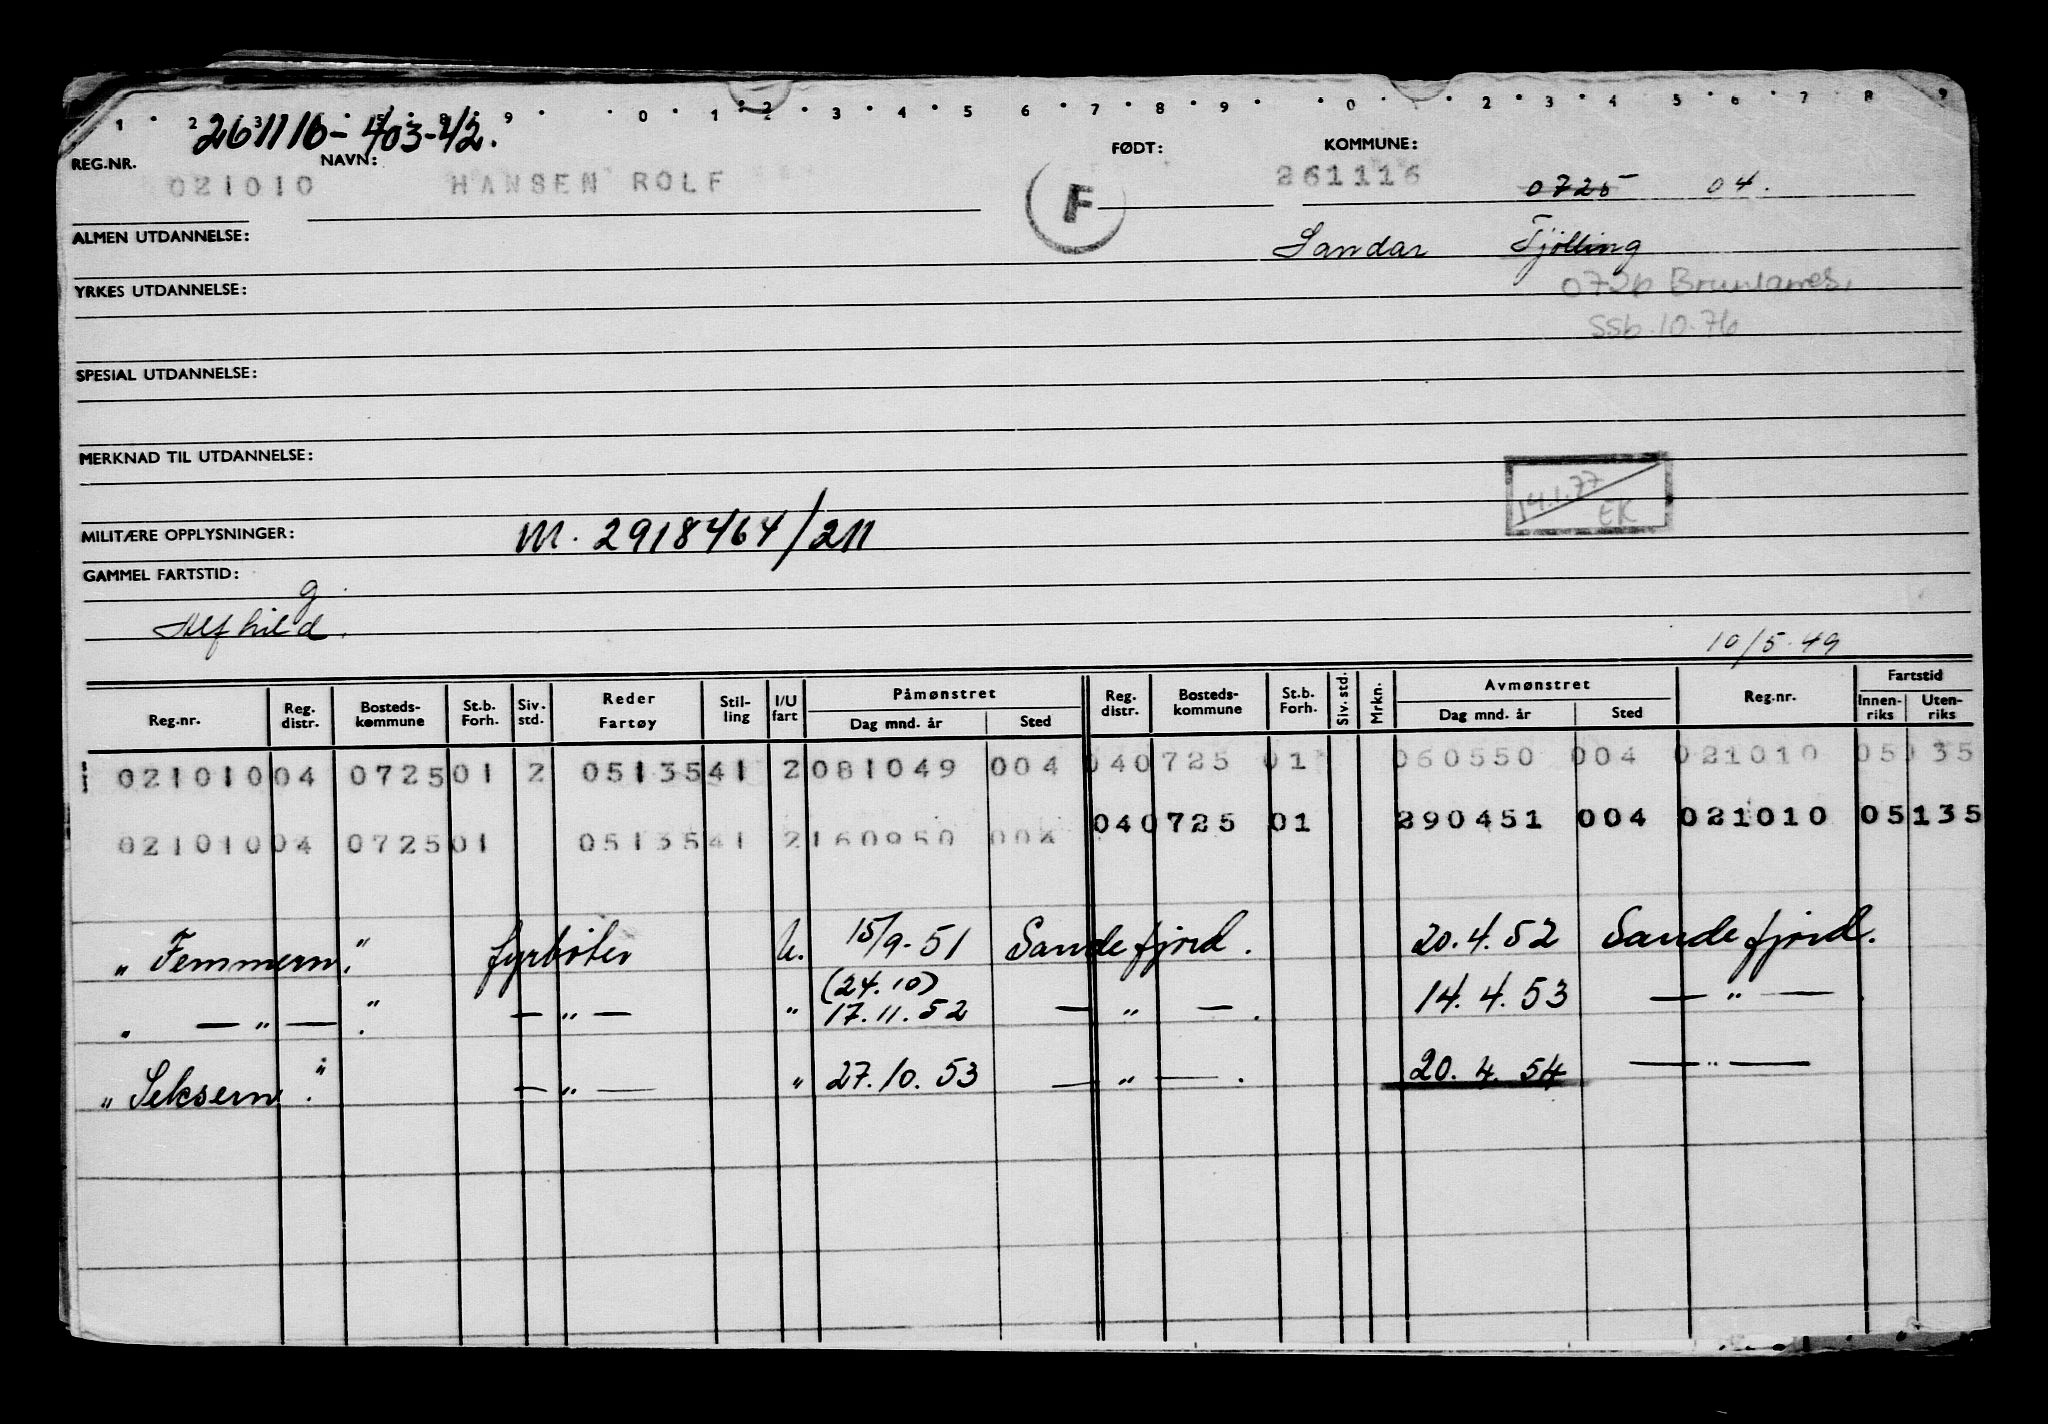 1 2 3 5 8 9 0 1 2 3 4 5 6 7 8 9 0 1 2 3 4 5 6 7 8 9
261116-403-42.
REG.NR. NAVN: FØDT: KOMMUNE:
021010 HANSEN ROLF F 261116 0725 04.
ALMEN UTDANNELSE: Sandar Tjølling
YRKES UTDANNELSE: 0726 Brunlanes,
SSb. 10.76
SPESIAL UTDANNELSE:
MERKNAD TIL UTDANNELSE:
14.1.77
EK
MILITÆRE OPPLYSNINGER: M. 2918464/211
GAMMEL FARTSTID:
g.
Alfhild.
10/5-49
Reg.nr. Reg. distr. Bosteds-kommune St.b. Forh. Siv. std. Reder Fartøy Stil-ling I/U fart Påmønstret Dag mnd. år Sted Reg. distr. Bosteds-kommune St.b. Forh. Siv. std. Mrkn. Avmønstret Dag mnd. år Sted Reg.nr. Fartstid Innen-riks Uten-riks
021010 04 0725 01 2 05135 41 2 081049 004 04 0725 01 060550 004 021010 05135
04 0725 01 290451 004 021010 05135
021010 04 0725 01 05135 41 2 160950 004
" Femmern." fyrbøter U. 15/9-51 Sandefjord. 20.4.52 Sandefjord.
(24.10)
" — " — " . — " — " 17.11.52 — " — . 14.4.53 — " — .
" Seksern ". — " — " 27.10.53 — " — . 20.4.54 — " —